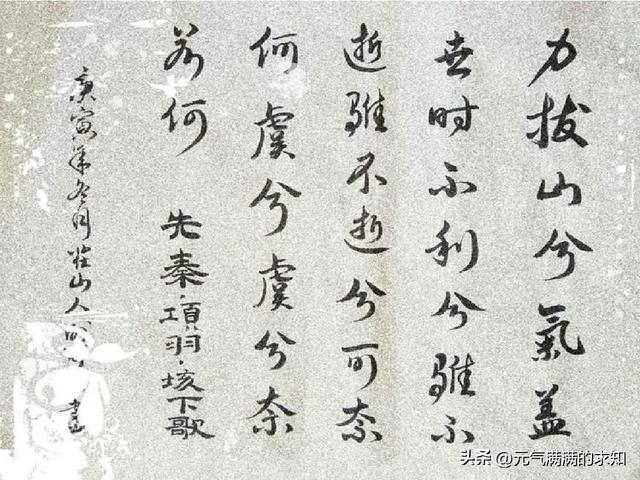 力拔山兮氣蓋
世时不利兮骓不
逝骓不逝兮可奈
何虞兮虞兮奈
若何
先秦·項羽·垓下歌
庚寅年冬月壮山人書
头条 @元气满满的求知